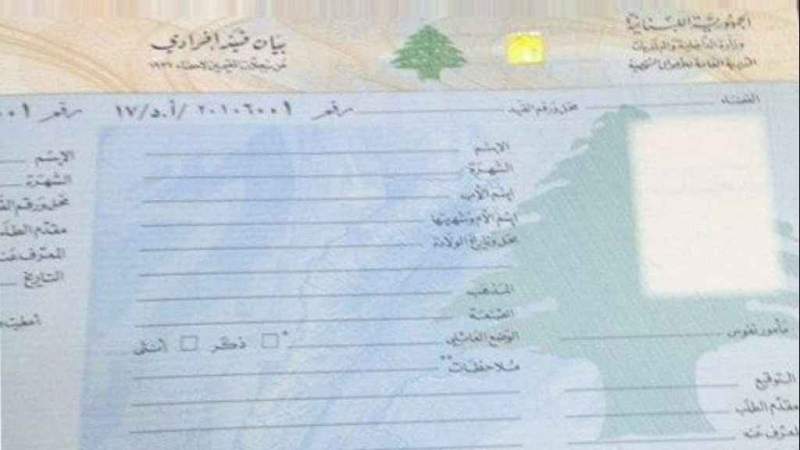 الجمهوريّة اللبنانية
وزارة الداخلية والبلديات
المديرية العامة للأحوال الشخصية
بيان قيد إفرادي
عن سجلات المقيمين لإحصاء ١٩٣٢
القضاء
محل ورقم القيد
رقم ٢٠١٠٦٠٠١ /أ.د/١٧
رقم
الإسم
الشهرة
إسم الأب
إسم الأم وشهرتها
محل وتاريخ الولادة
المذهب
الصنعة
الوضع العائلي
* ذكر أنثى
ملاحظات **
مأمور نفوس
التوقيع
مقدّم الطلب
المعرّف عنه
الإسم
الشهرة
محل ورقم
مقدّم
المعرّف عنه
التاريخ